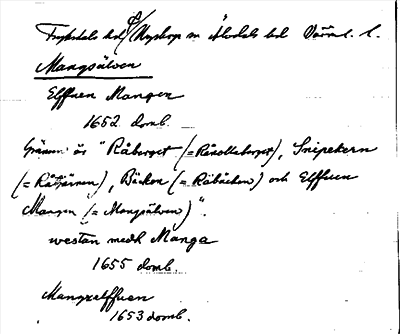 Fryksdals hd, Nyskoga sn Älvdals hd Värml. l.
Mangsälven
Elffuen Mangen
1652 domb.
Gränsen är "Råberget (= Råkollaberget), Snipekern
(= Råtjärnen), Bäcken (= Råbäcken) och Elffuen
Mangen (= Mangsälven)".
westan medh Manga
1655 domb.
Mangzelffuen
1653 domb.